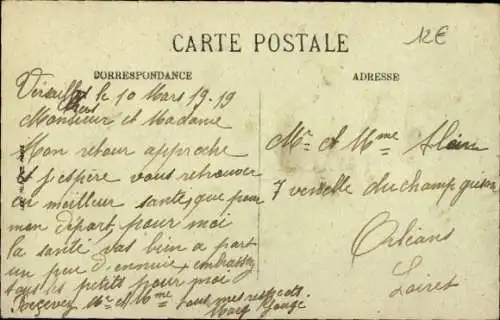 CARTE POSTALE
12€
CORRESPONDANCE
ADRESSE
le 10 Mars 1919
Monsieur et Madame
Mon retour approche
et j'espère vous retrouver
en meilleur santé, que pour
mon départ, pour moi
la santé vas bien a part
un peu d'ennuie, embrassez
tous les petits pour moi
Recevez Mr et Mme tous mes respects.
Mr et Mme
7 venelle du champ
Orléans
Loiret